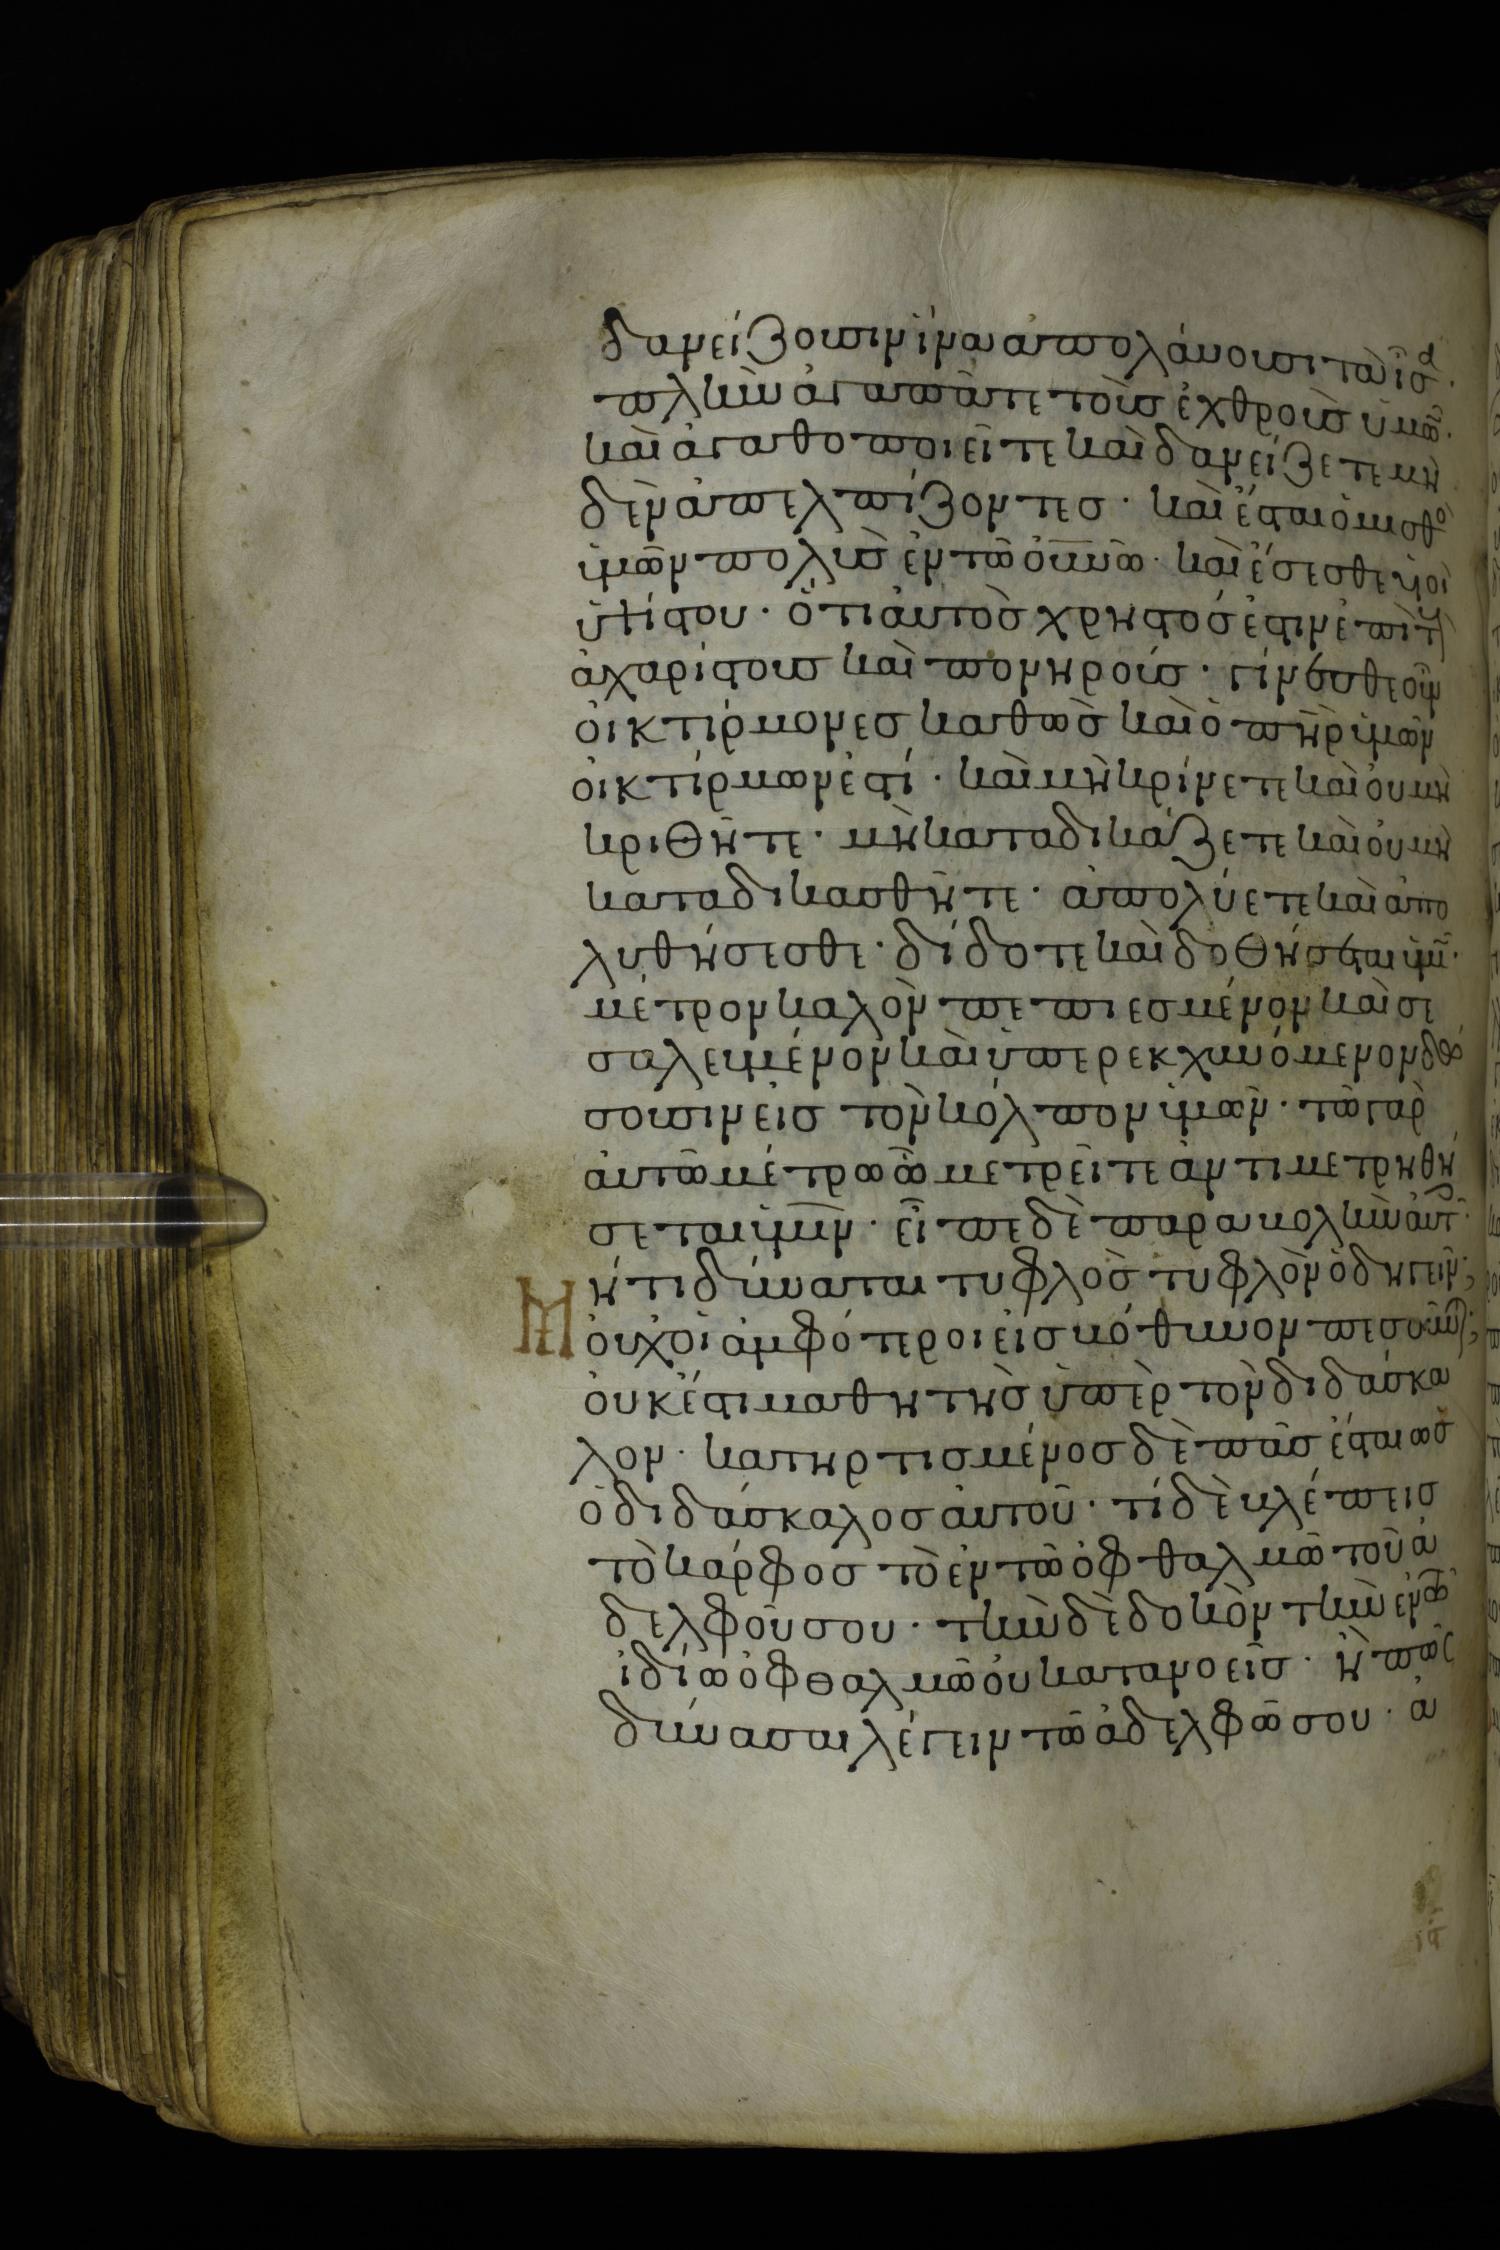 δανείζουσιν ἵνα ἀπολάβουσι τὰ ἴσα·
πλὴν ἀγαπᾶτε τοὺς ἐχθροὺς ὑμῶν·
καὶ ἀγαθοποιεῖτε καὶ δανείζετε μη
δὲν ἀπελπίζοντες· καὶ ἔσται ὁ μισθὸς
ὑμῶν πολὺς ἐν τῶ οὐνῶ· καὶ ἔσεσθε υἱοὶ
ὑψίστου· ὅτι αὐτὸς χρηστός ἐστιν ἐπὶ τοὺς
ἀχαρίστους καὶ πονηρούς· γίνεσθε οὖν
οἰκτίρμονες καθὼς καὶ ὁ πὴρ ὑμῶν
οἰκτίρμων ἐστί· καὶ μὴ κρίνετε καὶ οὐ μὴ
κριθῆτε· μὴ καταδικάζετε καὶ οὐ μὴ
καταδικασθῆτε· ἀπολύετε καὶ ἀπο
λυθήσεσθε· δίδοτε καὶ δοθήσεται ὑμῖν·
μέτρον καλὸν πεπιεσμένον καὶ σε
σαλευμένον καὶ ὑπερεκχυνόμενον δώ
σουσιν εἰς τὸν κόλπον ὑμῶν· τῶ γὰρ
αὐτῶ μέτρω ὧ μετρεῖτε ἀντιμετρηθή
σεται ὑμῖν· εἶπε δὲ παραβολὴν αὐτοῖς·
Μήτι δύναται τυφλὸς τυφλὸν ὁδηγεῖν;
οὐχὶ ἀμφότεροι εἰς βόθυνον πεσοῦνται;
οὐκ ἔστι μαθητὴς ὑπὲρ τὸν διδάσκα
λον· κατηρτισμένος δὲ πᾶς ἔσται ὡς
ὁ διδάσκαλος αὐτοῦ· τί δὲ βλέπεις
τὸ κάρφος τὸ ἐν τῶ ὀφθαλμῶ τοῦ ἀ
δελφοῦ σου· τὴν δὲ δοκὸν τὴν ἐν τῶ
ἰδίω ὀφθαλμῶ οὐ κατανοεῖς· ἢ πῶς
δύνασαι λέγειν τῶ ἀδελφῶ σου· ἀ